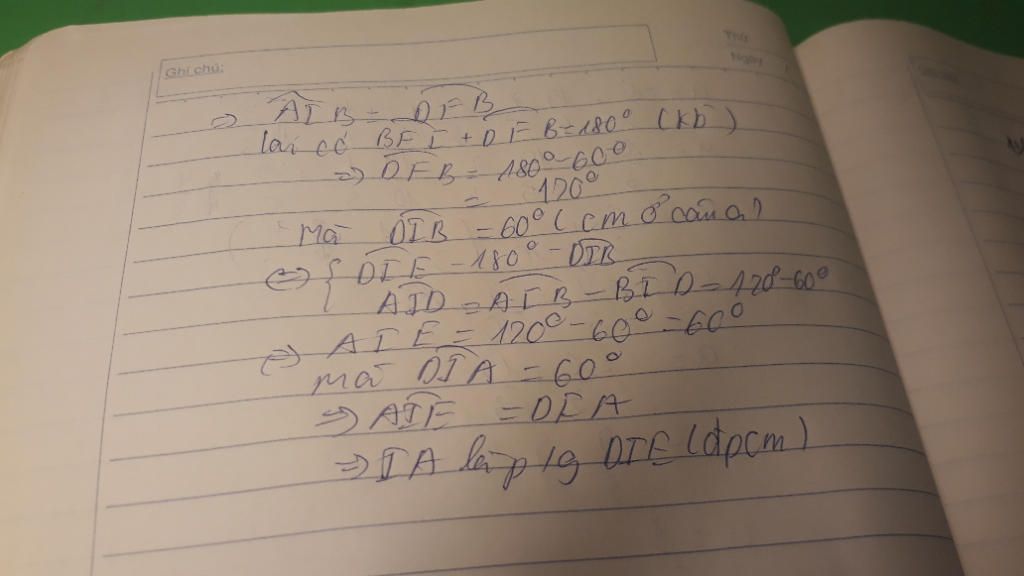 Ghi chú:
Thứ
Ngày
=> AIB = DFB
lại có BFI + DFB = 180° (kb)
=> DFB = 180° - 60°
= 120°
mà DIB = 60° (cm ở câu a)
<=> { DIE = 180° - DIB
AID = AIB - BID = 120° - 60°
<=> AIE = 120° - 60° = 60°
mà DIA = 60°
=> AIE = DIA
=> IA là p/g DIE (đpcm)